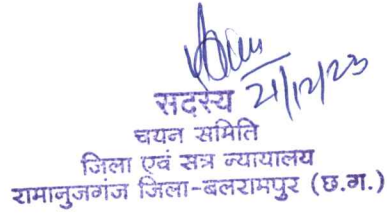 सदस्य 21/12/23
चयन समिति
जिला एवं सत्र न्यायालय
रामानुजगंज जिला-बलरामपुर (छ.ग.)